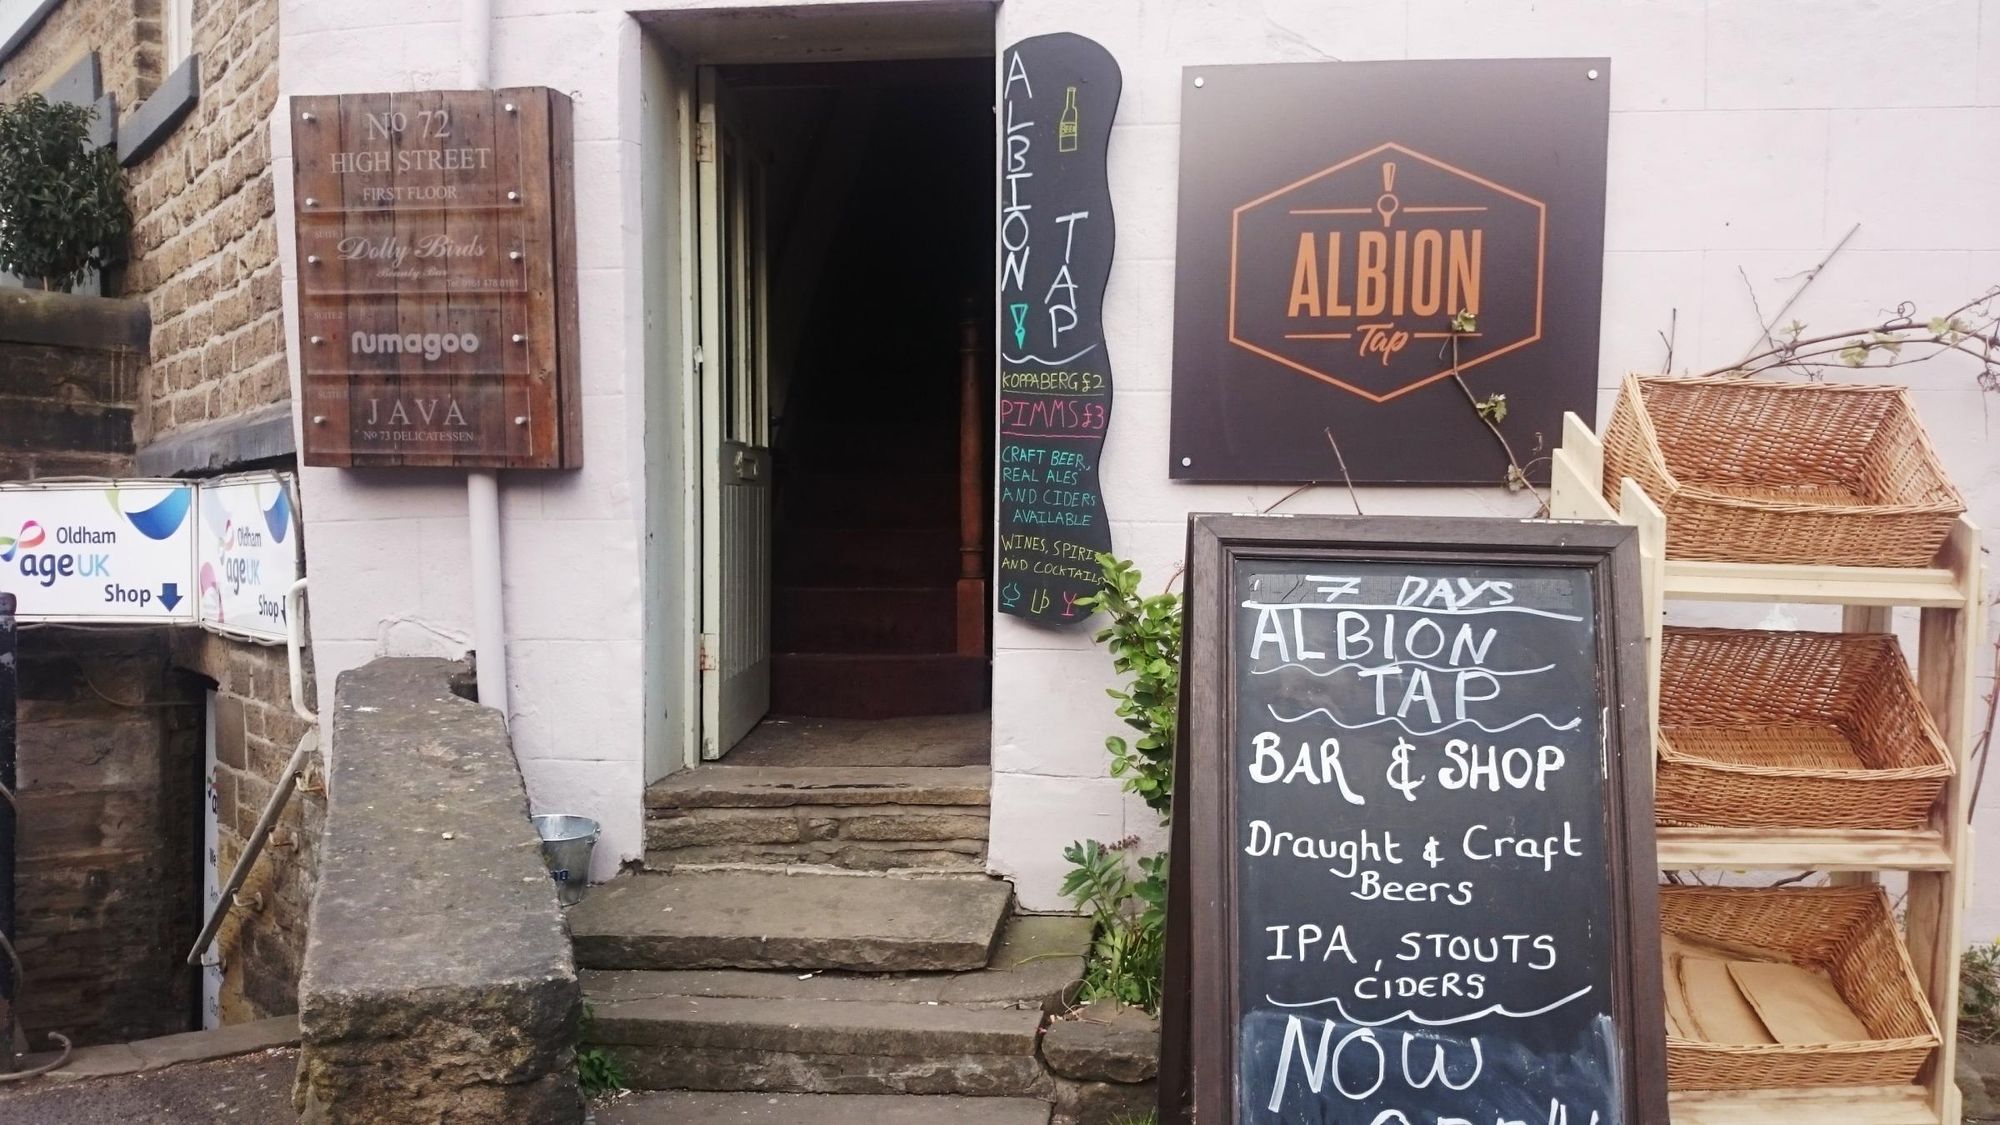 No 72
HIGH STREET
FIRST FLOOR
SUITE
Dolly Birds
Beauty Bar
Tel: 0161 478 8181
SUITE 2
numagoo
SUITE
JAVA
No 73 DELICATESSEN
Oldham
age UK
Shop
Oldham
age UK
Shop
ALBION
TAP
BEER
KOPPABERG £2
PIMMS £3
CRAFT BEER,
REAL ALES
AND CIDERS
AVAILABLE
WINES, SPIRI
AND COCKTAILS
ALBION
Tap
7 DAYS
ALBION
TAP
BAR & SHOP
Draught & Craft
Beers
IPA, STOUTS
CIDERS
NOW
OPEN